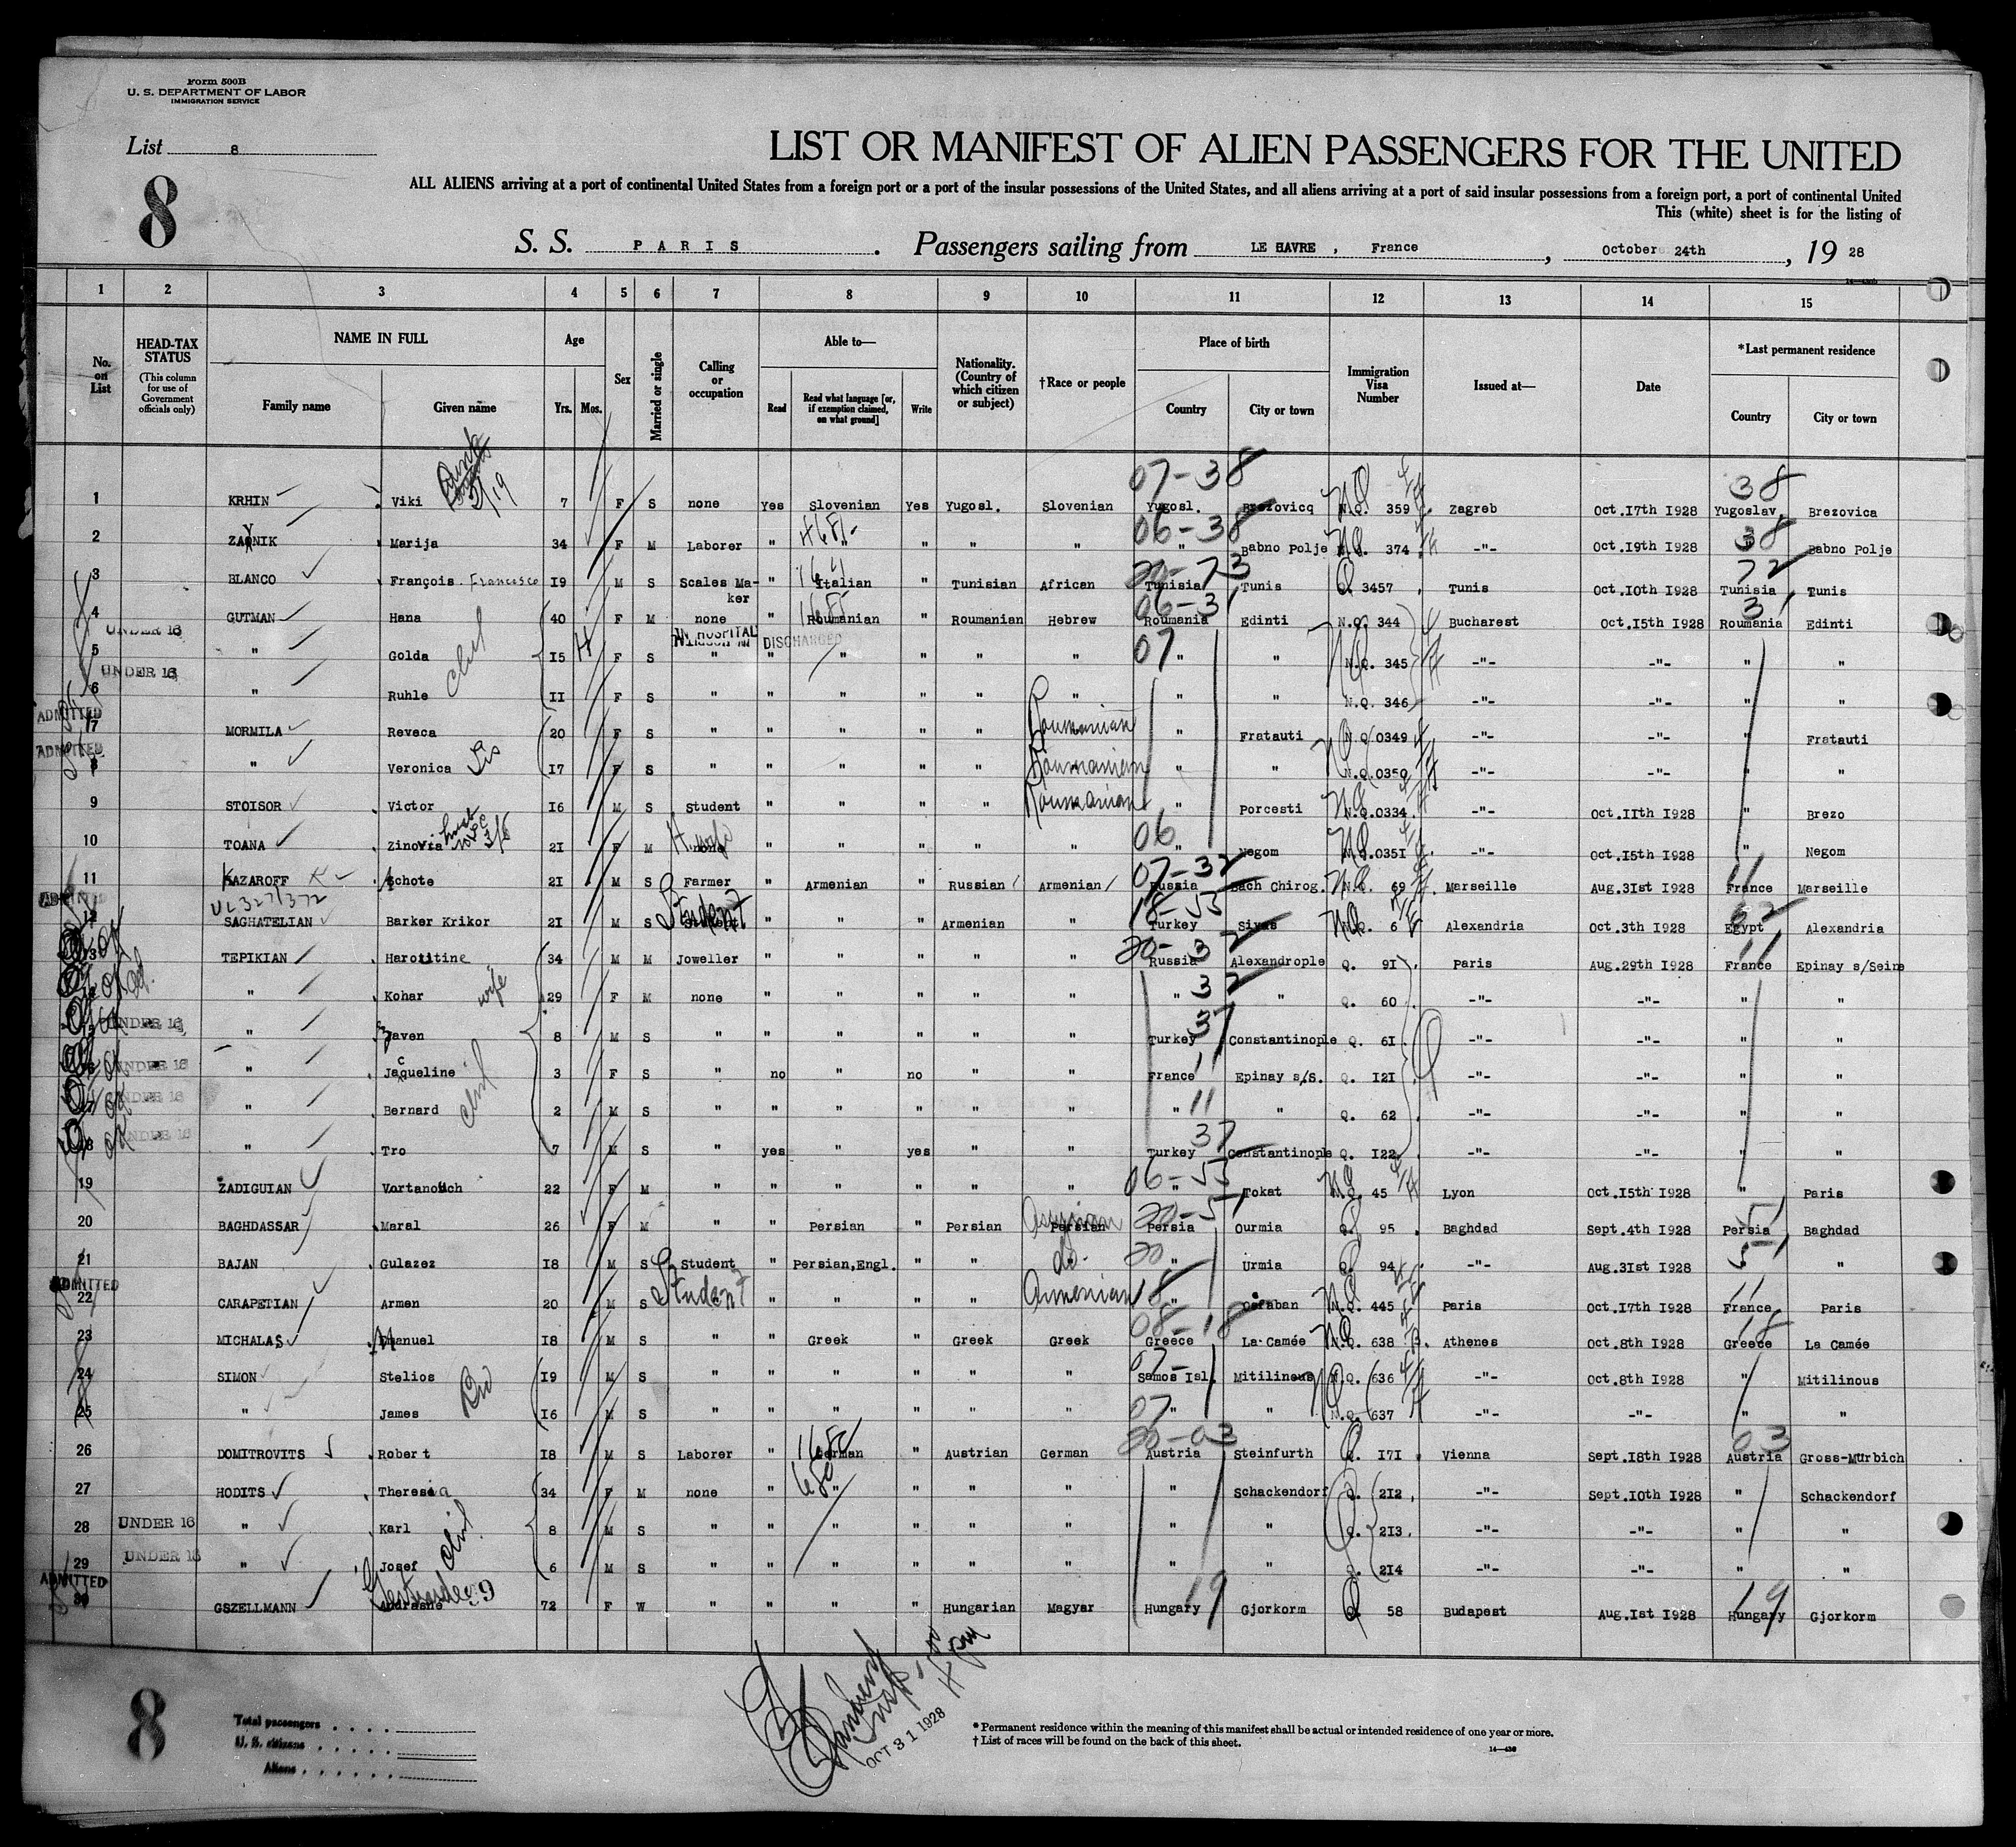 Form 500B
U. S. DEPARTMENT OF LABOR
IMMIGRATION SERVICE
List 8
8
LIST OR MANIFEST OF ALIEN PASSENGERS FOR THE UNITED
ALL ALIENS arriving at a port of continental United States from a foreign port or a port of the insular possessions of the United States, and all aliens arriving at a port of said insular possessions from a foreign port, a port of continental United
This (white) sheet is for the listing of
S. S. PARIS . Passengers sailing from LE HAVRE , France , October 24th , 19 28
1 2 3 4 5 6 7 8 9 10 11 12 13 14 15
No. on List
HEAD-TAX STATUS (This column for use of Government officials only)
NAME IN FULL Family name Given name
Age Yrs. Mos.
Sex
Married or single
Calling or occupation
Able to— Read Read what language [or, if exemption claimed, on what ground] Write
Nationality. (Country of which citizen or subject)
†Race or people
Place of birth Country City or town
Immigration Visa Number
Issued at—
Date
*Last permanent residence Country City or town
07-38 38
1 KRHIN Viki 7 F S none Yes Slovenian Yes Yugosl. Slovenian Yugosl. N.Q. 359 Zagreb Oct.17th 1928 Yugoslav. Brezovica
06-38 38
2 Marija 34 F M Laborer " " " " " " Babno Polje 374 -"- Oct.19th 1928 " Babno Polje
3 BLANCO François Francesco 19 M S Scales Maker " Italian " Tunisian African Tunisia Tunis Q. 3457 Tunis Oct.10th 1928 Tunisia Tunis
4 GUTMAN Hana 40 F M none " Roumanian " Roumanian Hebrew Roumania Edinti N.Q. 344 Bucharest Oct.15th 1928 Roumania Edinti
UNDER 16 IN HOSPITAL DISCHARGED
5 " Golda 15 F S " " " " " " 07 " " N.Q. 345 -"- -"- " "
UNDER 16
6 " Ruhle 11 F S " " " " " " " " N.Q. 346 -"- -"- " "
ADMITTED
7 MORMILA Reveca 20 F S " " " " " Roumanian " Fratauti N.Q.0349 -"- -"- " Fratauti
ADMITTED
8 " Veronica Sis 17 F S " " " " " Roumanian " " N.Q.0350 -"- -"- " "
9 STOISOR Victor 16 M S Student " " " " Roumanian " Porcesti N.Q.0334 -"- Oct.11th 1928 " Brezo
10 TOANA 21 F M none H.wife " " " " " 06 " Negom 0351 -"- Oct.15th 1928 " Negom
11 KAZAROFF Achote 21 M S Farmer " Armenian " Russian Armenian 07-32 Russia Bach Chirog. N.Q. 69 Marseille Aug.31st 1928 France Marseille
12 SAGHATELIAN Barker Krikor 21 M S Student " " " Armenian " 18-55 Turkey Sivas 6 Alexandria Oct.3th 1928 Egypt Alexandria
13 TEPIKIAN 34 M M Joweller " " " " " Russia Alexandrople Q. 91 Paris Aug.29th 1928 France Epinay s/Seine
14 " Kohar wife 29 F M none " " " " " " 32 " Q. 60 -"- -"- " "
UNDER 16
15 " 8 M S " " " " " " Turkey 37 Constantinople Q. 61 -"- -"- " "
UNDER 16
16 " Jacqueline 3 F S " no " no " " France Epinay s/S. Q. 121 -"- -"- " "
UNDER 16
17 " Bernard 2 M S " " " " " " " 11 " Q. 62 -"- -"- " "
UNDER 16
18 " Tro 7 M S " yes " yes " " Turkey 37 Constantinople Q. 122 -"- -"- " "
19 ZADIGUIAN 22 F M " " " " " " 06-55 " Tokat N.Q. 45 Lyon Oct.15th 1928 " Paris
20 BAGHDASSAR Maral 26 F M " " Persian " Persian Persian Assyrian Persia Ourmia 95 Baghdad Sept.4th 1928 Persia Baghdad
21 BAJAN Gulazez 18 M S Student " Persian,Engl. " " do. " Urmia 94 -"- Aug.31st 1928 " "
ADMITTED
22 CARAPETIAN Armen 20 M S Student " " " " Armenian 18 " N.Q. 445 Paris Oct.17th 1928 France Paris
23 MICHALAS 18 M S " " Greek " Greek Greek 08-18 Greece La Camée N.Q. 638 Athenes Oct.8th 1928 Greece La Camée
24 SIMON Stelios 19 M S " " " " " " Samos Isl. Mitilinous N.Q. 636 -"- Oct.8th 1928 " Mitilinous
25 " James Bro 16 M S " " " " " " 07 " " N.Q. 637 -"- -"- " "
26 DOMITROVITS Robert 18 M S Laborer " German " Austrian German Austria Steinfurth Q. 171 Vienna Sept.18th 1928 Austria 03 Gross-Mürbich
27 HODITS Theresia 34 F M none " " " " " " Schackendorf Q. 212 -"- Sept.10th 1928 " Schackendorf
28 UNDER 16 " Karl 8 M S " " " " " " " " Q. 213 -"- -"- " "
29 UNDER 16 " Josef 6 M S " " " " " " " " Q. 214 -"- -"- " "
ADMITTED
30 GSZELLMANN Andrasne 72 F W " " " " Hungarian Magyar Hungary 19 Gjorkorm Q. 58 Budapest Aug.1st 1928 Hungary 19 Gjorkorm
8
Total passengers . . . .
U. S. citizens . . . . .
Aliens . . . . . .
OCT 31 1928
* Permanent residence within the meaning of this manifest shall be actual or intended residence of one year or more.
† List of races will be found on the back of this sheet.
14—430